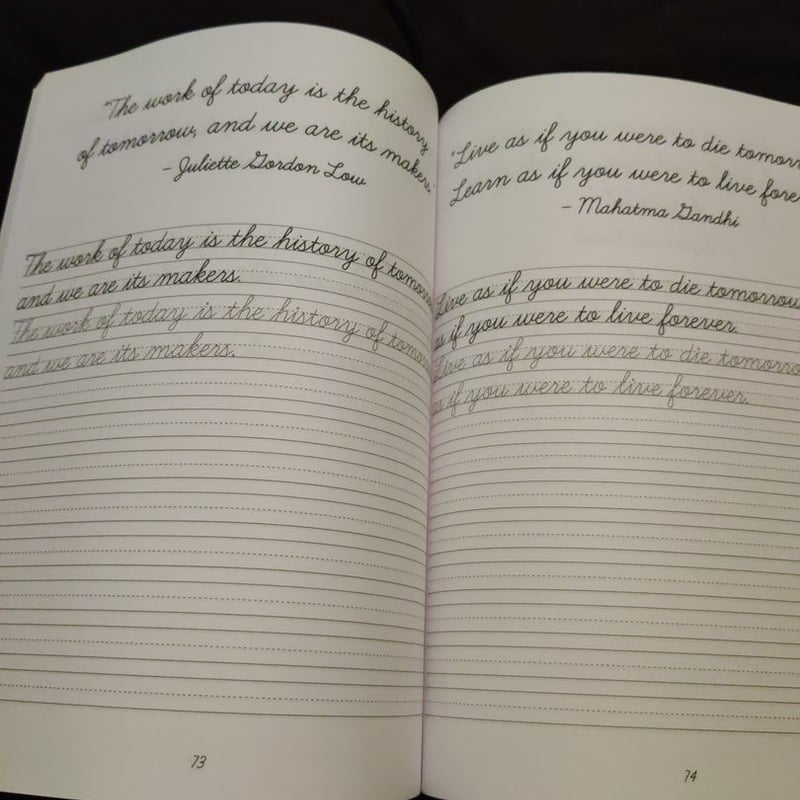 "The work of today is the history
of tomorrow, and we are its makers."
- Juliette Gordon Low
The work of today is the history of tomorrow
and we are its makers.
The work of today is the history of tomorrow
and we are its makers.
73
"Live as if you were to die tomorrow
Learn as if you were to live fore
- Mahatma Gandhi
Live as if you were to die tomorrow
as if you were to live forever.
Live as if you were to die tomorro
as if you were to live forever.
74